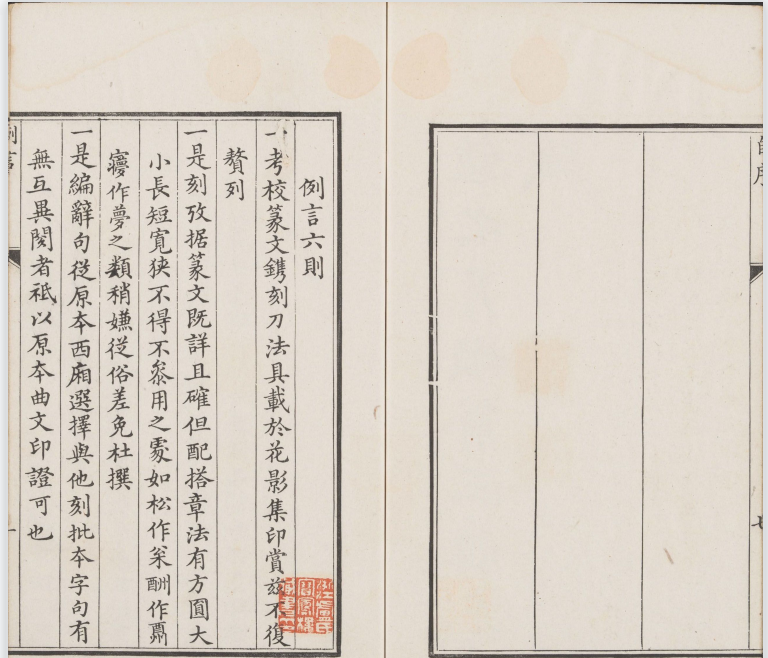 例言六則
一考校篆文鐫刻刀法具載於花影集印賞茲不復
贅列
一是刻攷据篆文既詳且確但配搭章法有方圓大
小長短寬狹不得不叅用之處如松作枀酬作
寱作夢之類稍嫌從俗差免杜撰
一是編辭句從原本西廂選擇與他刻批本字句有
無互異閱者祗以原本曲文印證可也
例言
一